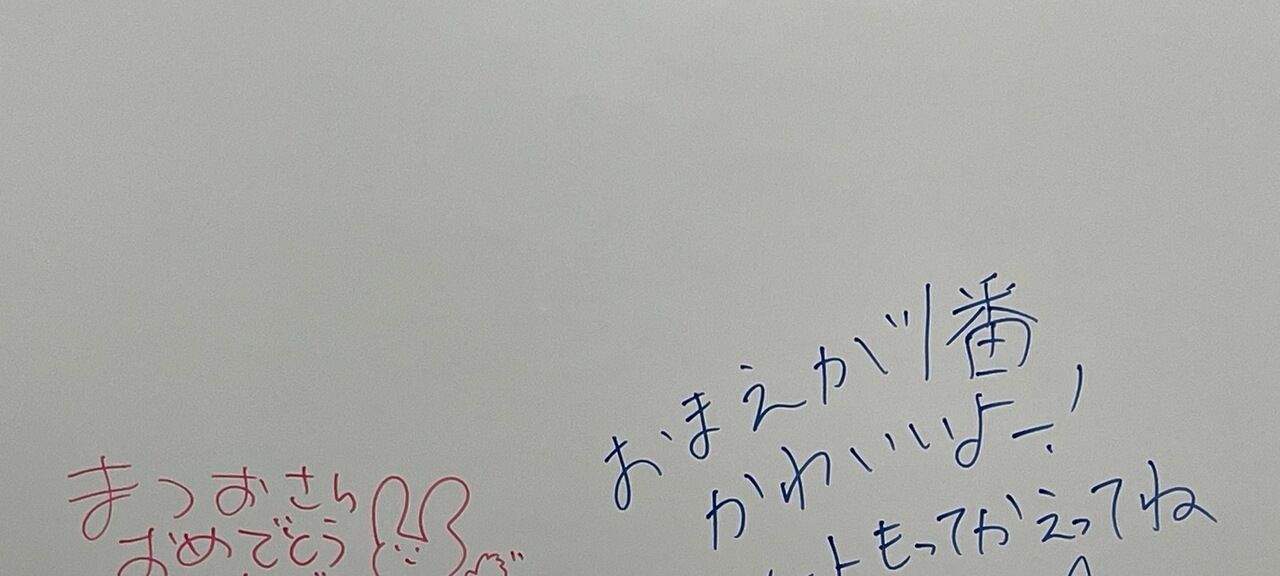 まつおさん
おめでとう
おまえが1番
かわいいよー!
もってかえってね